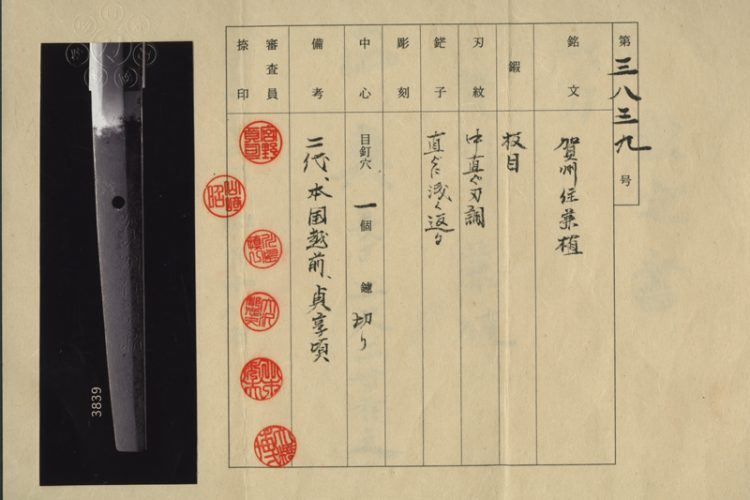 第三八三九号
銘文 賀州住兼植
鍜 板目
刃紋 中直ぐ刃調
鋩子 直ぐに浅く返る
彫刻
中心 目釘穴 一個 鑢 切り
備考 二代、本国越前、貞享頃
審査員
捺印
3839